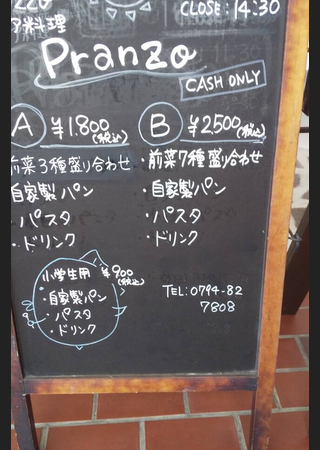 CLOSE:14:30
料理
Pranzo
CASH ONLY
A ¥1.800(税込)
前菜3種盛り合わせ
自家製パン
・パスタ
・ドリンク
B ¥2,500(税込)
・前菜7種盛り合わせ
・自家製パン
・パスタ
・ドリンク
小学生用 ¥900(税込)
・自家製パン
・パスタ
・ドリンク
TEL:0794-82
7808